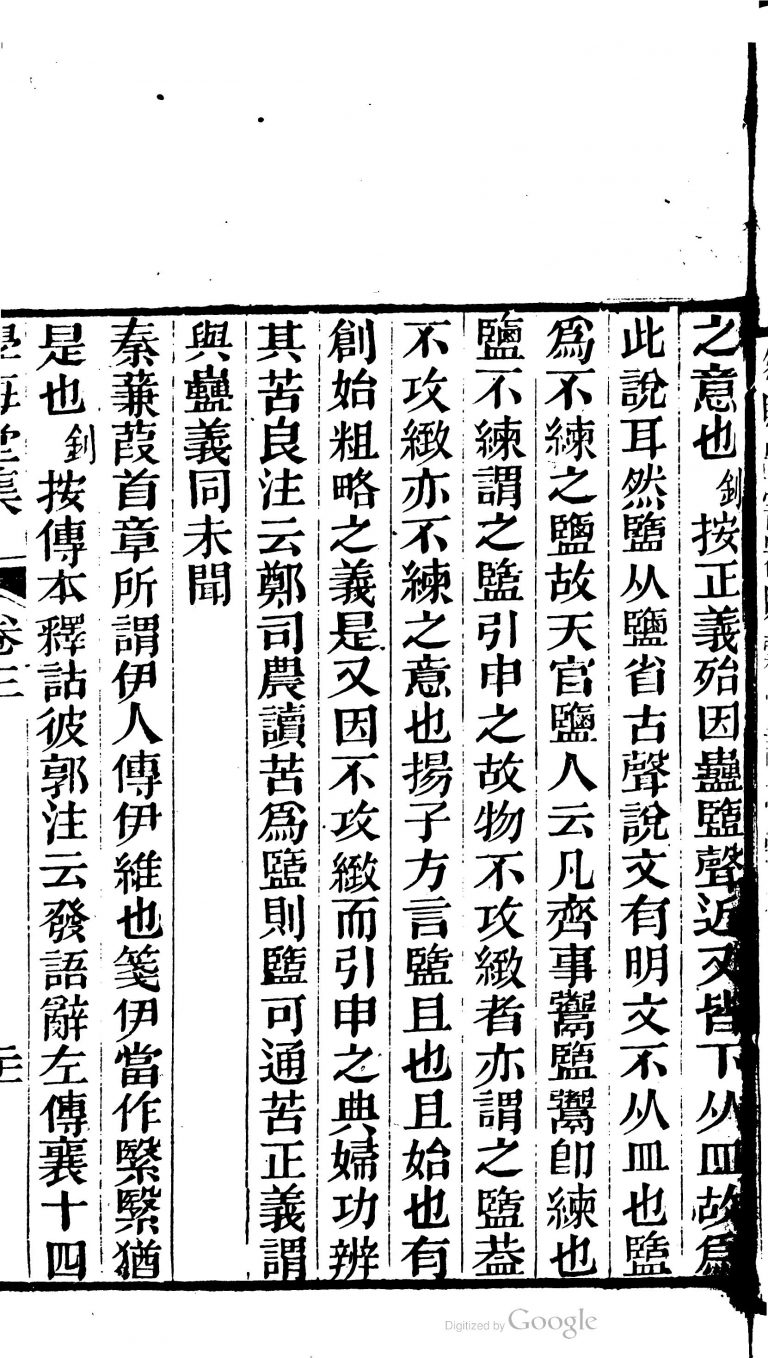 之意也釗按正義殆因蠱盬聲近又皆下从皿故爲
此說耳然盬从鹽省古聲說文有明文不从皿也盬
爲不練之鹽故天官鹽人云凡齊事鬻盬鬻卽練也
鹽不練謂之盬引申之故物不攻緻者亦謂之盬葢
不攻緻亦不練之意也揚子方言盬且也且始也有
創始粗略之義是又因不攻緻而引申之典婦功辨
其苦良注云鄭司農讀苦爲盬則盬可通苦正義謂
與蠱義同未聞
秦蒹葭首章所謂伊人傳伊維也箋伊當作繄繄猶
是也釗按傳本釋詁彼郭注云發語辭左傳襄十四
學海堂集 卷三
Digitized by Google